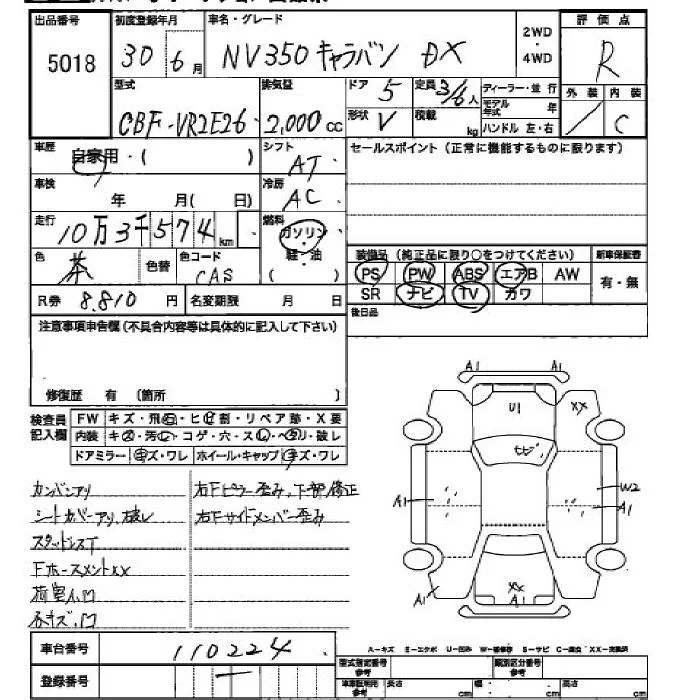 出品番号 初度登録年月 車名・グレード 2WD・4WD 評価点
5018 30 6月 NV350 キャラバン DX R
型式 排気量 ドア 5 定員 3/6人 ディーラー・並行 外装 内装
CBF-VR2E26 2,000cc 形状 V 積載 kg モデル年式 年 ハンドル 左・右 / C
車歴 自家用・( ) シフト AT セールスポイント(正常に機能するものに限ります)
車検 年 月( 日) 冷房 AC
走行 10万3千574km 燃料 ガソリン・軽・油
色 茶 色替 色コード CAS ( )
装備品(純正品に限り○をつけてください) 新車保証書
PS PW ABS エアB AW 有・無
SR ナビ TV カワ
R券 8.810 円 名変期限 月 日
後日品
注意事項申告欄(不具合内容等は具体的に記入して下さい)
修復歴 有 (箇所 )
検査員記入欄 FW キズ・飛石・ヒビ割・リペア跡・X要
内装 キズ・汚レ・コゲ・穴・スレ・ヘタリ・破レ
ドアミラー キズ・ワレ ホイール・キャップ キズ・ワレ
カンバンアリ 右Fピラー歪み、下部修正
シートカバーアリ、破レ 右Fサイドメンバー歪み
スタッドレスT
FホースメントXX
荷室A.凹
各キズ、凹
A1 A1
U1 XX
A1 W2
A1
XX
A1 A1
車台番号 110224
登録番号 一
A-キズ E-エクボ U-凹み W-補修跡 S-サビ C-腐食 XX-交換済
型式指定番号 参考 類別区分番号 参考
車庫証明用 参考 長さ cm 幅 cm 高さ cm